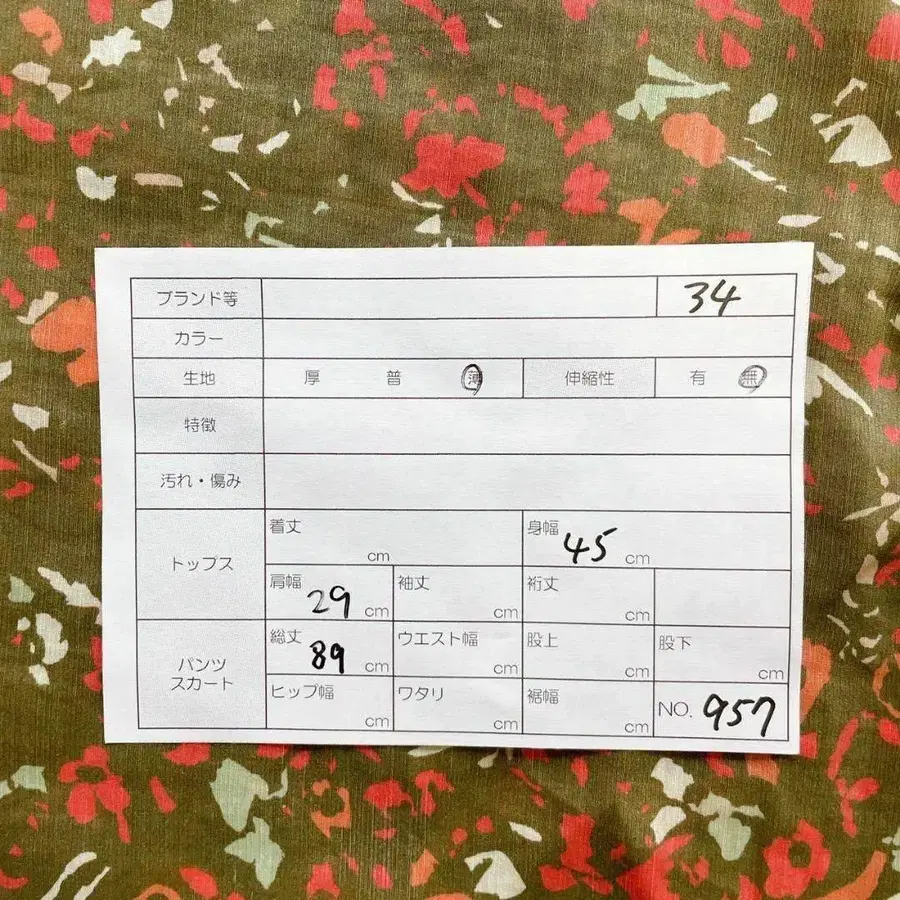 ブランド等 34
カラー
生地 厚 普 薄 伸縮性 有 無
特徴
汚れ・傷み
トップス
着丈 cm 身幅 45 cm
肩幅 29 cm 袖丈 cm 裄丈 cm
パンツ
スカート
総丈 89 cm ウエスト幅 cm 股上 cm 股下 cm
ヒップ幅 cm ワタリ cm 裾幅 cm NO. 957